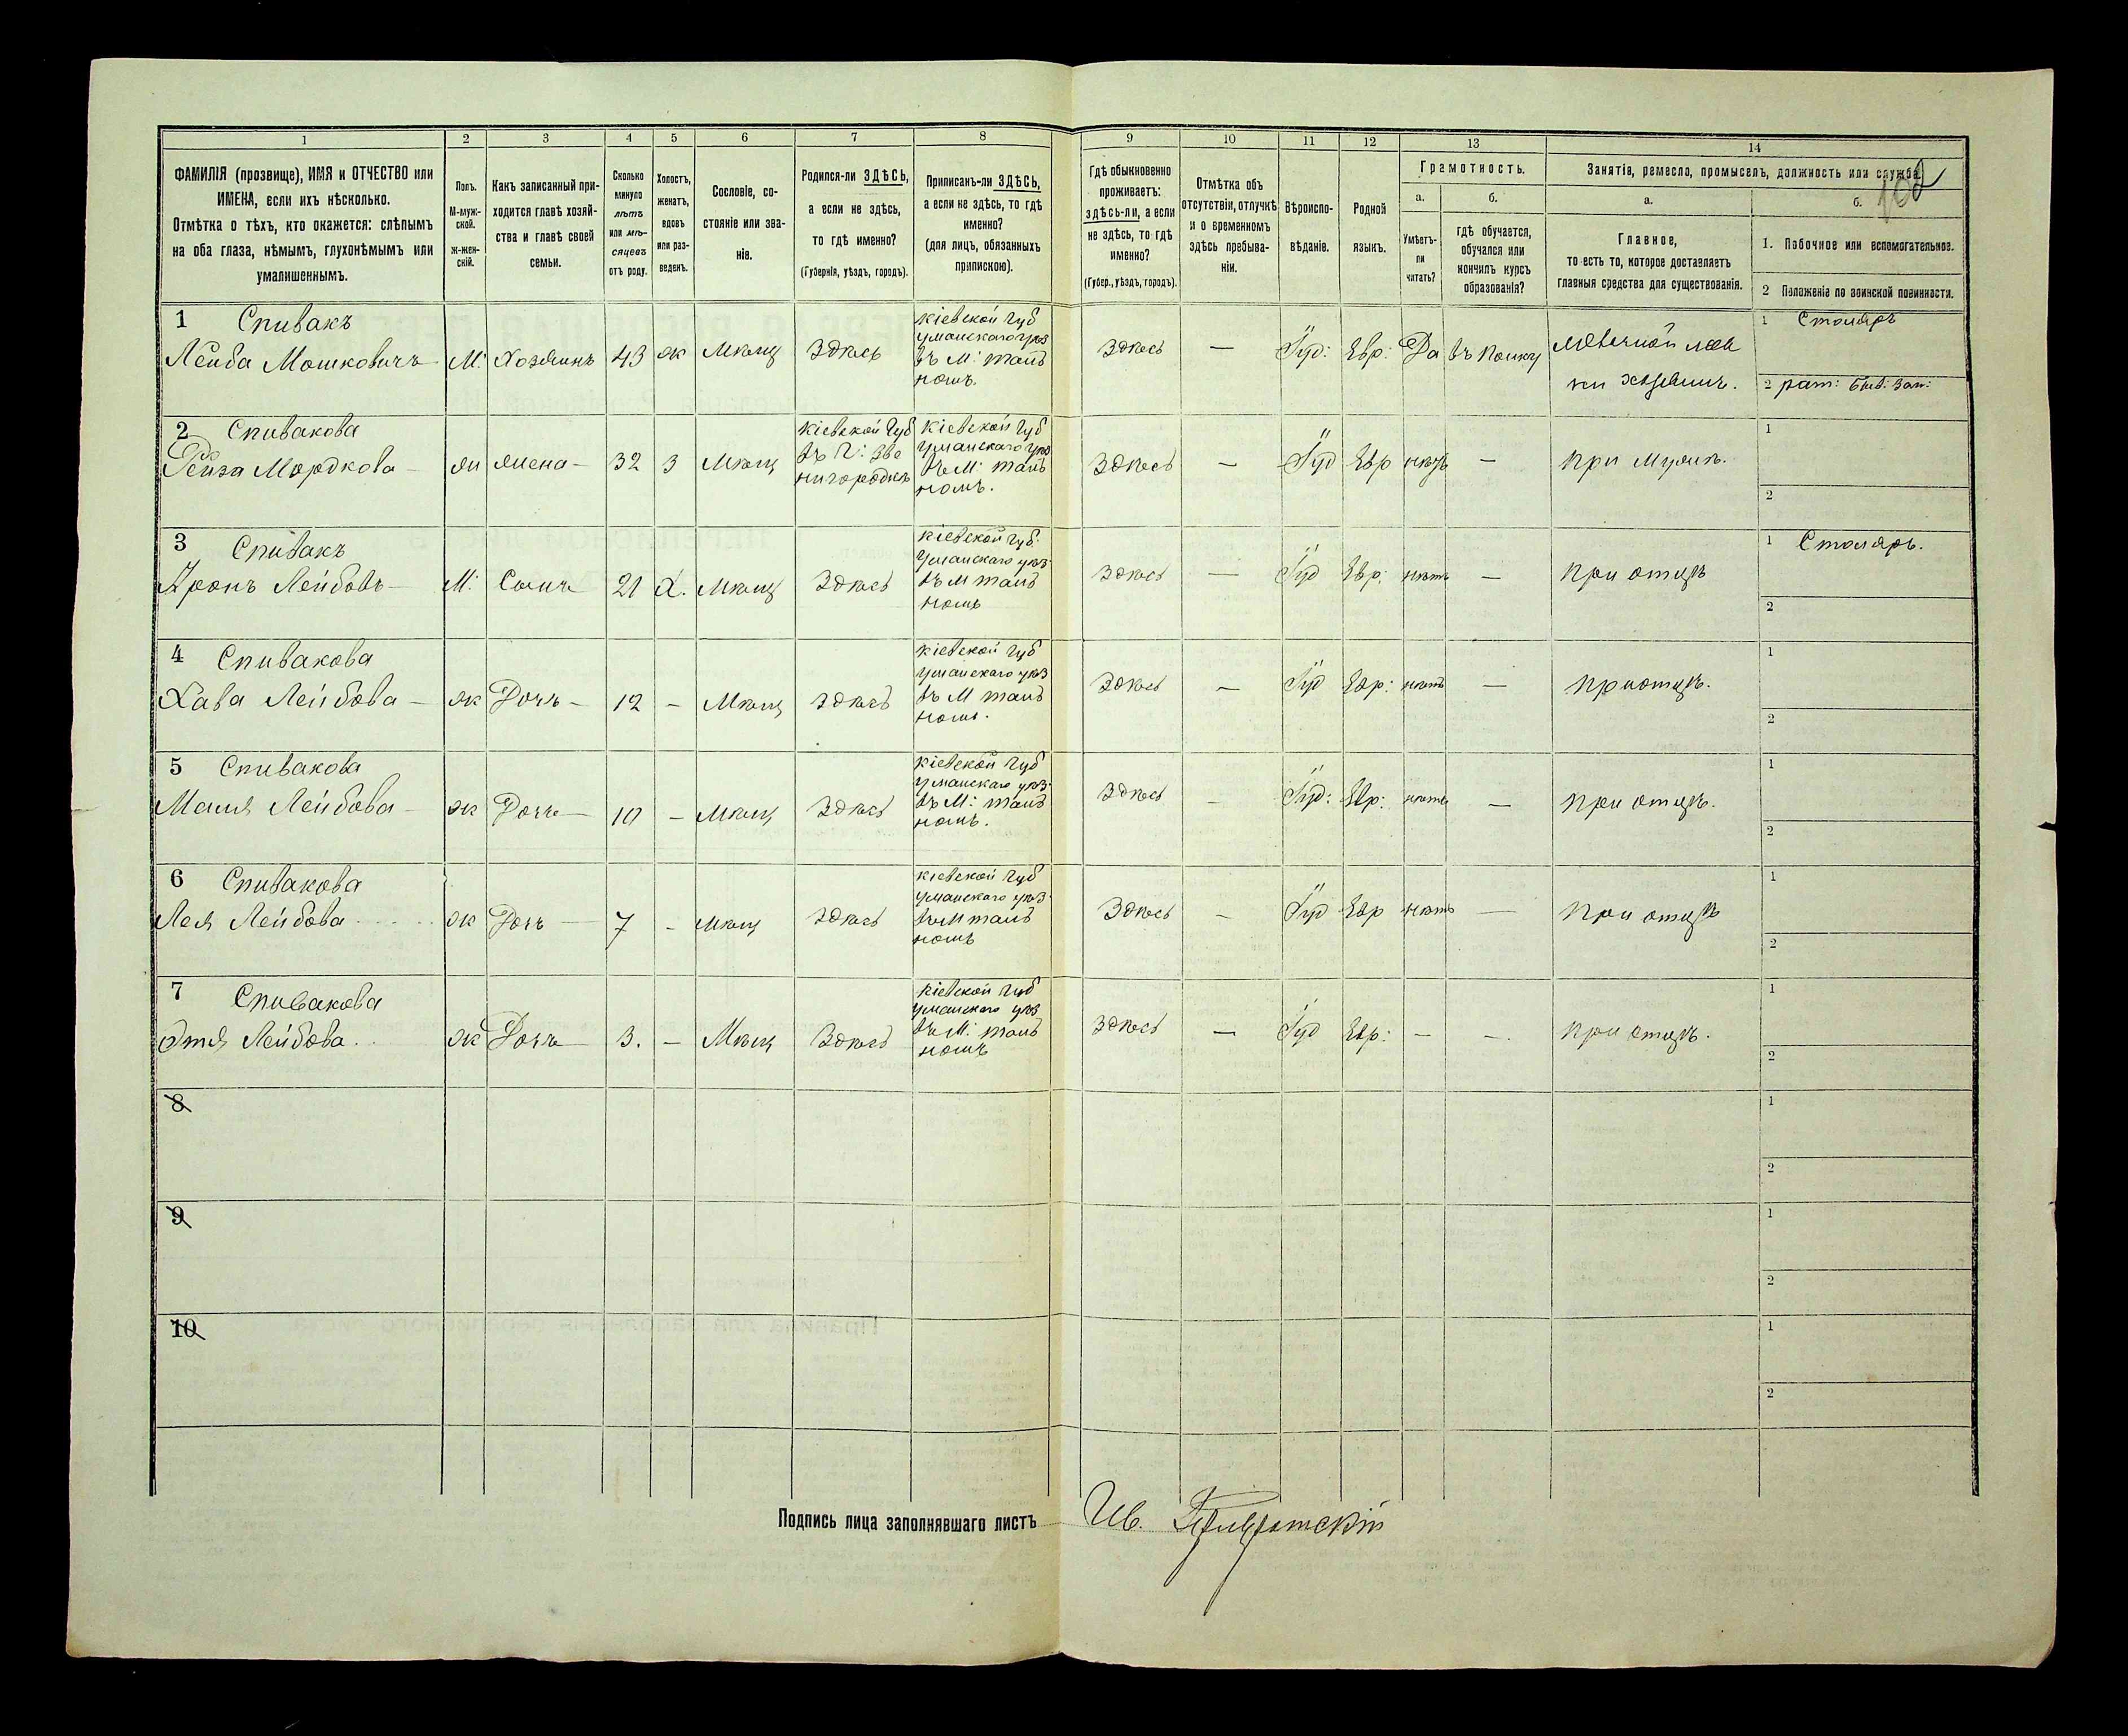 1
2
3
4
5
6
7
8
9
10
11
12
13
14
ФАМИЛІЯ (прозвище), ИМЯ и ОТЧЕСТВО или
ИМЕНА, если ихъ нѣсколько.
Отмѣтка о тѣхъ, кто окажется: слѣпымъ
на оба глаза, нѣмымъ, глухонѣмымъ или
умалишеннымъ.
Полъ.
М-муж-
ской.
Ж-жен-
скій.
Какъ записанный при-
ходится главѣ хозяй-
ства и главѣ своей
семьи.
Сколько
минуло
лѣтъ
или мѣ-
сяцевъ
отъ роду.
Холостъ,
женатъ,
вдовъ
или раз-
веденъ.
Сословіе, со-
стояніе или зва-
ніе.
Родился-ли ЗДѢСЬ,
а если не здѣсь,
то гдѣ именно?
(Губернія, уѣздъ, городъ).
Приписанъ-ли ЗДѢСЬ,
а если не здѣсь, то гдѣ
именно?
(для лицъ, обязанныхъ
припискою).
Гдѣ обыкновенно
проживаетъ:
здѣсь-ли, а если
не здѣсь, то гдѣ
именно?
(Губер., уѣздъ, городъ).
Отмѣтка объ
отсутствіи, отлучкѣ
и о временномъ
здѣсь пребыва-
ніи.
Вѣроиспо-
вѣданіе.
Родной
языкъ.
Грамотность.
а.
Умѣетъ-
ли
читать?
б.
гдѣ обучается,
обучался или
кончилъ курсъ
образованія?
Занятія, ремесло, промыселъ, должность или служба.
102
а.
Главное,
то есть то, которое доставляетъ
главныя средства для существованія.
б.
1. Побочное или вспомогательное.
2 Положеніе по воинской повинности.
1 Спивакъ
Лейба Мошковичъ
М: Хозяинъ 43 ж Мѣщ Здѣсь
Кіевской Губ
Уманскаго уѣз
въ М: Таль
номъ.
Здѣсь — Іуд: Евр: Да
хозяинъ.
1 Столяръ
2
2 Спивакова
Рейза Мордкова
жена 32 З Мѣщ
Кіевской Губ
въ Г: Зве
нигородкѣ
Кіевской Губ
Уманскаго уѣз
въ М: Таль
номъ.
Здѣсь — Іуд Евр нѣтъ — при Мужѣ.
1
2
3 Спивакъ
Аронъ Лейбовъ
М: Сынъ 21 Х. Мѣщ Здѣсь
Кіевской Губ.
Уманскаго уѣз
въ М Таль
номъ
Здѣсь — Іуд Евр: нѣтъ — при отцѣ
1 Столяръ.
2
4 Спивакова
Хава Лейбова
ж Дочь 12 — Мѣщ Здѣсь
Кіевской Губ
Уманскаго уѣз
въ М Таль
номъ.
Здѣсь — Іуд Евр: нѣтъ — при отцѣ.
1
2
5 Спивакова
Маля Лейбова
ж Дочь 10 — Мѣщ Здѣсь
Кіевской Губ
Уманскаго уѣз.
въ М: Таль
номъ.
Здѣсь — Іуд: Евр: нѣтъ — при отцѣ.
1
2
6 Спивакова
Лея Лейбова
ж Дочь 7 — Мѣщ Здѣсь
Кіевской Губ
Уманскаго уѣз.
въ М Таль
номъ
Здѣсь — Іуд Евр нѣтъ — при отцѣ
1
2
7 Спивакова
Этля Лейбова
ж Дочь 3. — Мѣщ Здѣсь
Кіевской Губ
Уманскаго уѣз
въ М: Таль
номъ
Здѣсь — Іуд Евр: — — при отцѣ.
1
2
8
1
2
9
1
2
10
1
2
Подпись лица заполнявшаго листъ